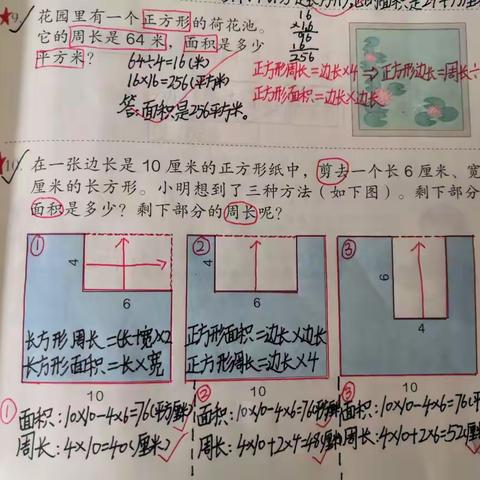 9. 花园里有一个正方形的荷花池。
它的周长是 64 米，面积是多少
平方米？
64÷4=16(米)
16×16=256(平方米)
答:面积是256平方米。
16
×16
96
16
256
正方形周长=边长×4 ⇒ 正方形边长=周长÷
正方形面积=边长×边长
10. 在一张边长是 10 厘米的正方形纸中，剪去一个长 6 厘米、宽
厘米的长方形。小明想到了三种方法（如下图）。剩下部分
面积是多少？剩下部分的周长呢？
①
4
6
长方形周长=(长+宽)×2
长方形面积=长×宽
10
②
4
6
正方形面积=边长×边长
正方形周长=边长×4
10
③
6
4
10
① 面积:10×10-4×6=76(平方厘米)
周长:4×10=40(厘米)
② 面积:10×10-4×6=76(平方厘米)
周长:4×10+2×4=48(厘米)
③ 面积:10×10-4×6=76(平
周长:4×10+2×6=52(厘米